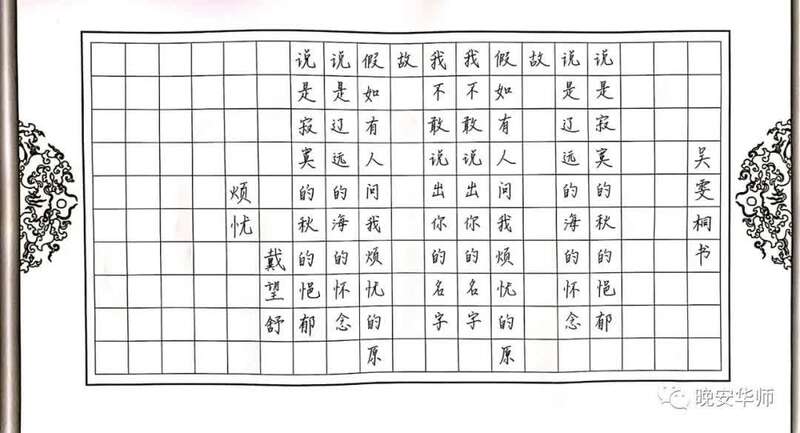 烦忧
戴望舒
说是寂寞的秋的悒郁
说是辽远的海的怀念
假如有人问我烦忧的原
故
我不敢说出你的名字
我不敢说出你的名字
假如有人问我烦忧的原
故
说是辽远的海的怀念
说是寂寞的秋的悒郁
吴雯桐书
晚安华师